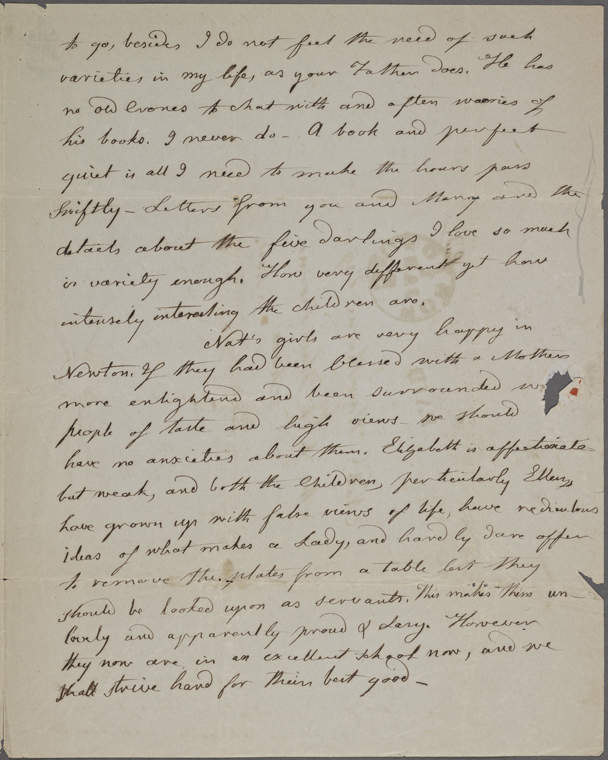 to go, besides I do not feel the need of such
varieties in my life, as your Father does. He has
no old Crones to chat with and often wearies of
his books. I never do - A book and perfect
quiet is all I need to make the hours pass
swiftly - Letters from you and Mary and the
details about the five darlings I love so much
is variety enough. How very different yet how
intensely interesting the children are.
Nat's girls are very happy in
Newton. If they had been blessed with a Mother
more enlightend and been surrounded
people of taste and high views - we should
have no anxieties about them. Elizabeth is affectionate
but weak, and both the Children, perticularly Ellen,
have grown up with false views of life, have rediculous
ideas of what makes a Lady, and hardly dare offer
to remove the plates from a table lest they
should be looked upon as servants. This makes them un-
lovely and apparently proud & Lazy. However
they now are in an excellent school now, and we
shall strive hard for their best good -